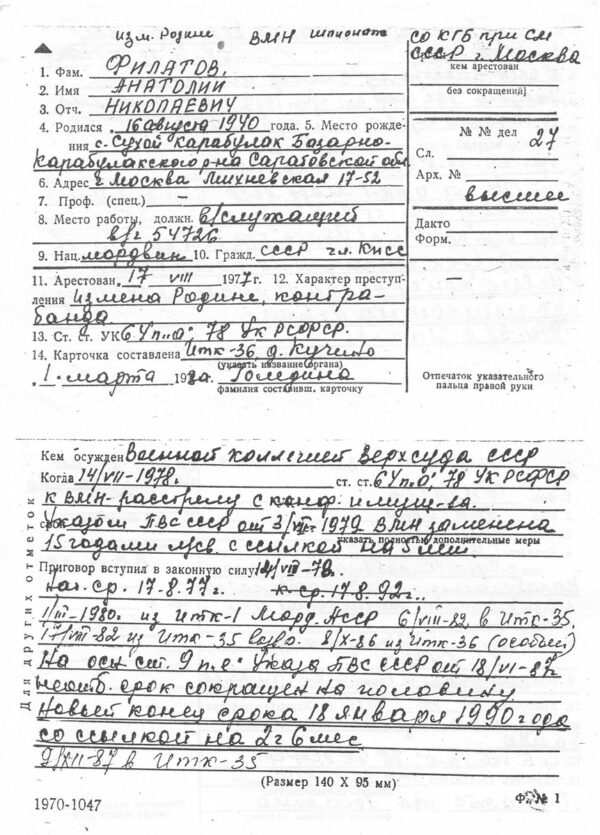 изм. Родине ВМН шпионаж
СО КГБ при СМ
СССР г. Москва
кем арестован
без сокращений)
1. Фам. ФИЛАТОВ,
2. Имя АНАТОЛИЙ
3. Отч. НИКОЛАЕВИЧ
4. Родился 16 августа 1940 года. 5. Место рожде-
ния с. Сухой Карабулак Базарно-
Карабулакского р-на Саратовской обл.
6. Адрес г. Москва Михневская 17-52
7. Проф. (спец.) —
8. Место работы, должн. в/служащий
в/ч 54726
9. Нац. мордвин 10. Гражд. СССР чл. КПСС
11. Арестован 17 VIII 1977 г. 12. Характер преступ-
ления Измена Родине, контра-
банда
13. Ст. ст. УК 64 п. "а", 78 УК РСФСР.
14. Карточка составлена ИТК-36 д. Кучино
(указать название органа)
1. марта 198
фамилия составивш. карточку
№ № дел 27
Сл.
Арх. №
высшее
Дакто
Форм.
—
Отпечаток указательного
пальца правой руки
Кем осужден Военной коллегией Верхсуда СССР
Когда 14/VII-1978. ст. ст. 64 п. "а", 78 УК РСФСР
к ВМН-расстрелу с конф. имущ-ва.
Указом ПВС СССР от 1979 ВМН заменена
указать полностью дополнительные меры
15 годами л/св. с ссылкой на 5 лет.
Приговор вступил в законную силу 14/VII-78.
Нач. ср. 17-8.77г. к-ср. 17.8.92г..
1/III-1980г. из ИТК-1 Морд. АССР 6/VIII-82 в ИТК-35,
17/VIII-82 из ИТК-35 8/X-86 из ИТК-36 (особый)
На осн. ст. 9 Указа ПВС СССР от 18/VI-87
неотб. срок сокращен на половину
Новый конец срока 18 января 1990 года
со ссылкой на 2 г 6 мес
9/XII-87 в ИТК-35
Для других отметок
(Размер 140 X 95 мм)
1970-1047
Ф. № 1